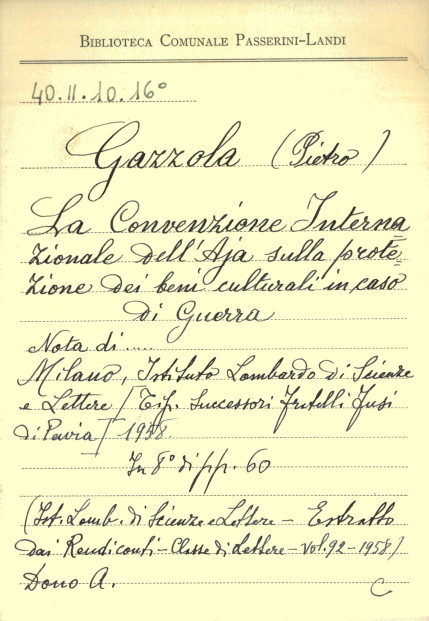 BIBLIOTECA COMUNALE PASSERINI-LANDI
40.II.10.16°
Gazzola (Pietro)
La Convenzione Interna=
zionale dell'Aja sulla prote=
zione dei beni culturali in caso
di Guerra
Nota di .....
Milano, Istituto Lombardo di Scienze
e Lettere [Tip. Successori Fratelli Fusi
di Pavia] 1958.
In 8° di pp. 60
(Ist. Lomb. di Scienze e Lettere - Estratto
dai Rendiconti - Classe di Lettere - Vol. 92 - 1958)
Dono A.
C